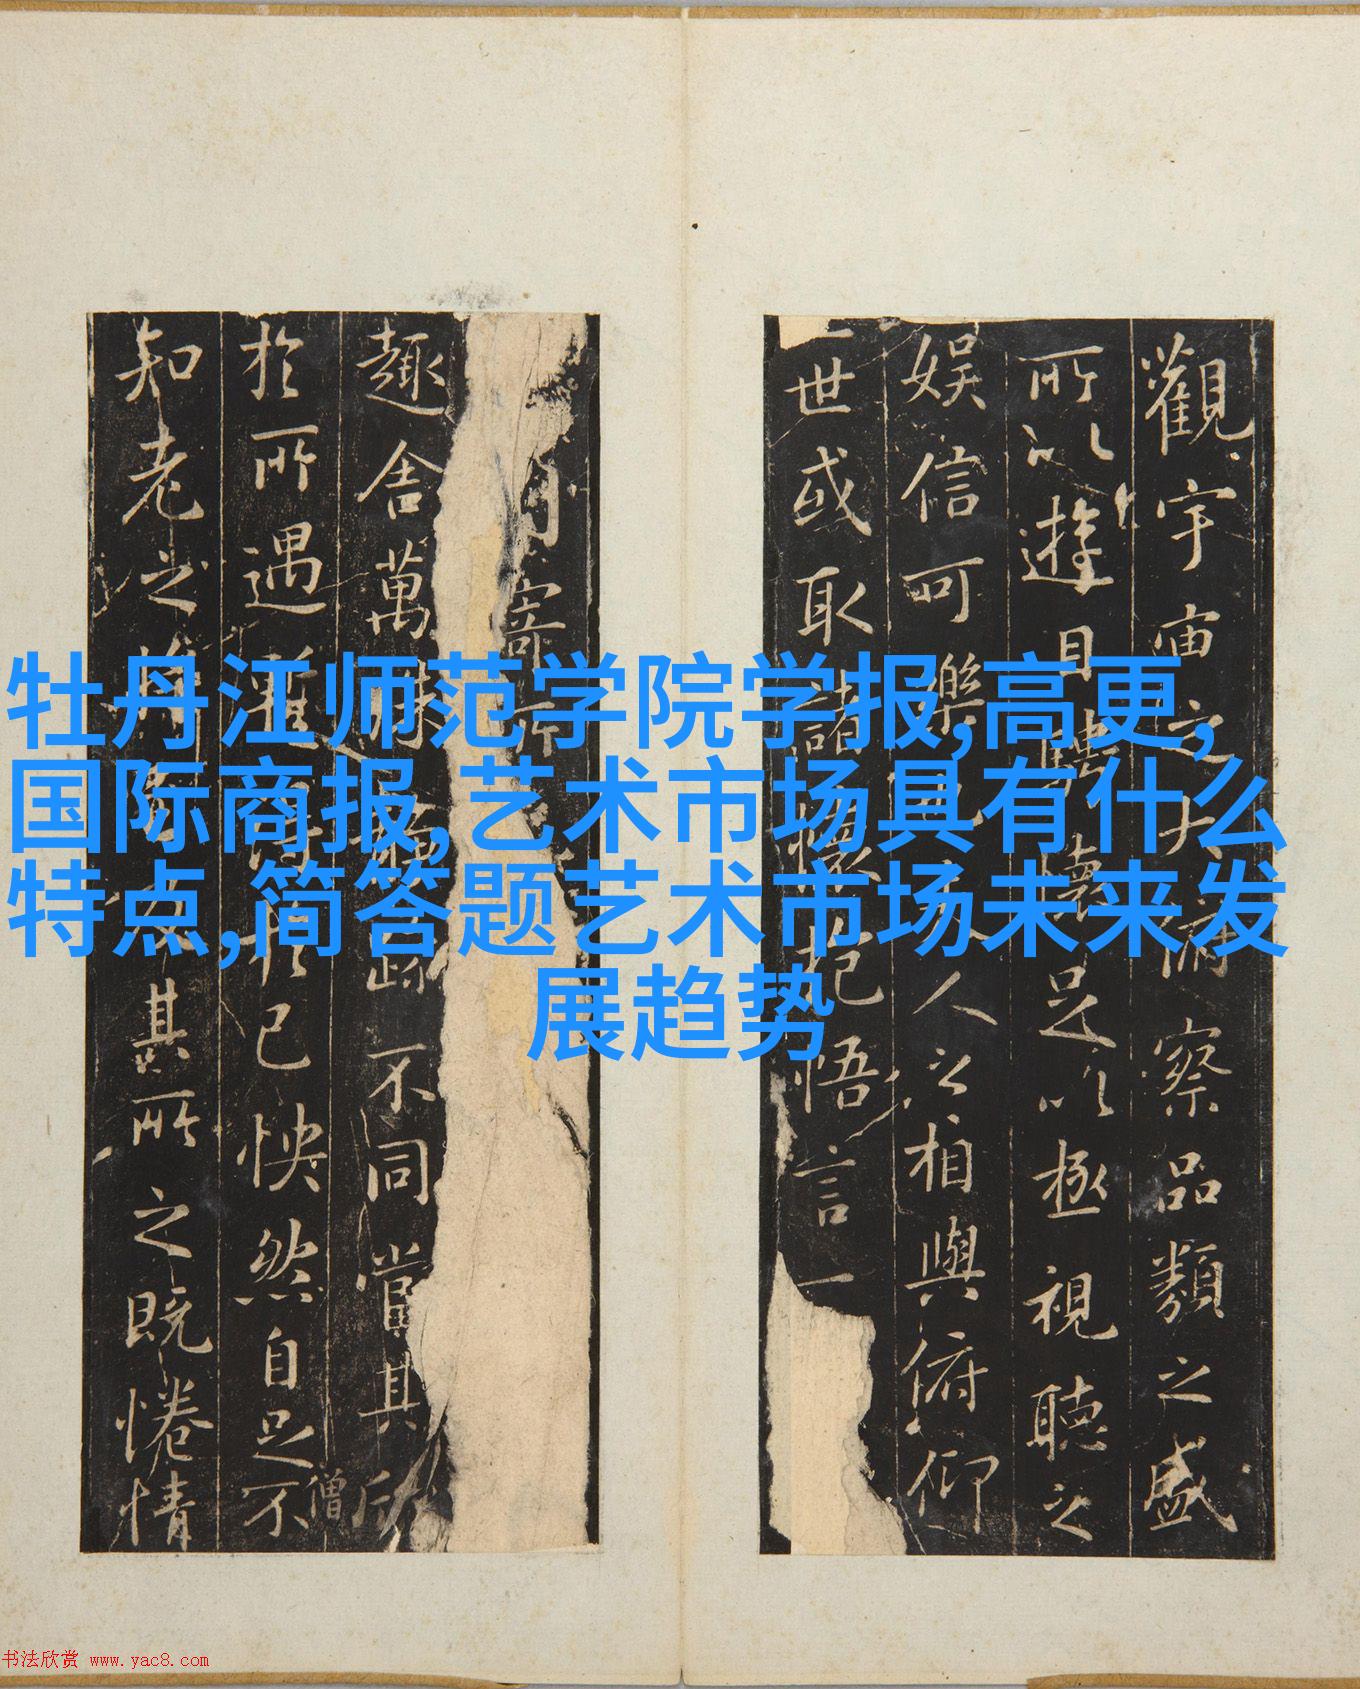 牡丹江师范学院学报,高更,
国际商报,艺术市场具有什么
特点,简答题艺术市场未来发
展趋势
觀宇宙之大俯察品類之盛
所以遊目騁懷足以極視聽之
娱信可樂也夫人之相與俯仰
一世或取諸懷抱悟言一
寄所
趣舍萬殊静躁不同當其欣
於所遇暫得於己怏然自足不
知老之將至及其所之既惓情
僧
书法欣赏 www.yac8.com